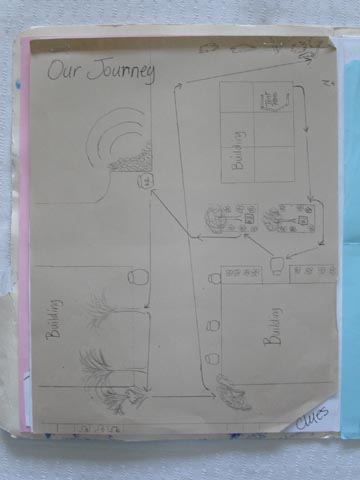 Our Journey
Building
Building
Building
clues